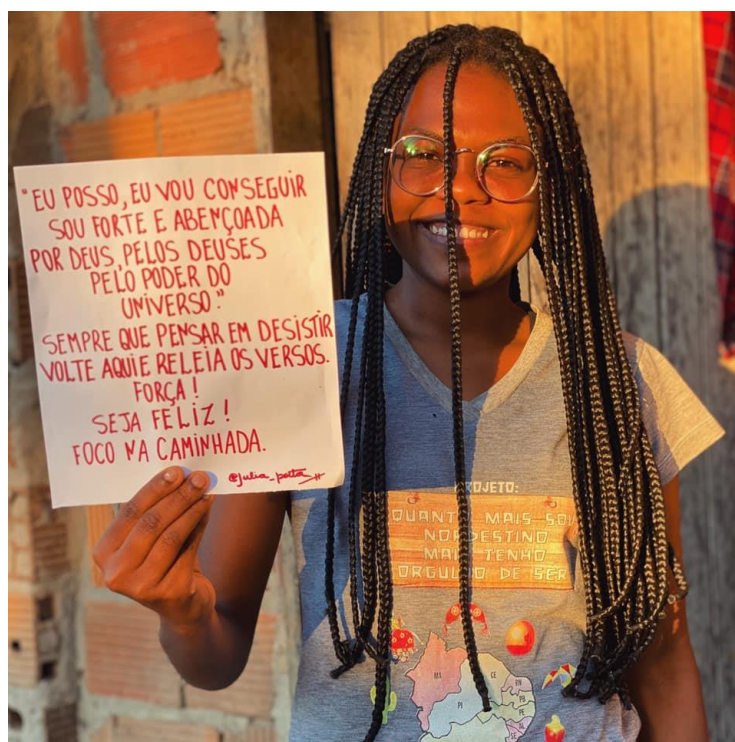 "EU POSSO, EU VOU CONSEGUIR
SOU FORTE E ABENÇOADA
POR DEUS, PELOS DEUSES
PELO PODER DO
UNIVERSO."
SEMPRE QUE PENSAR EM DESISTIR
VOLTE AQUI E RELEIA OS VERSOS.
FORÇA!
SEJA FELIZ!
FOCO NA CAMINHADA.
@julia_poeta
PROJETO:
QUANTO MAIS SOU
NORDESTINO
MAIS TENHO
ORGULHO DE SER
MA
CE
PI
RN
PB
PE
AL
SE